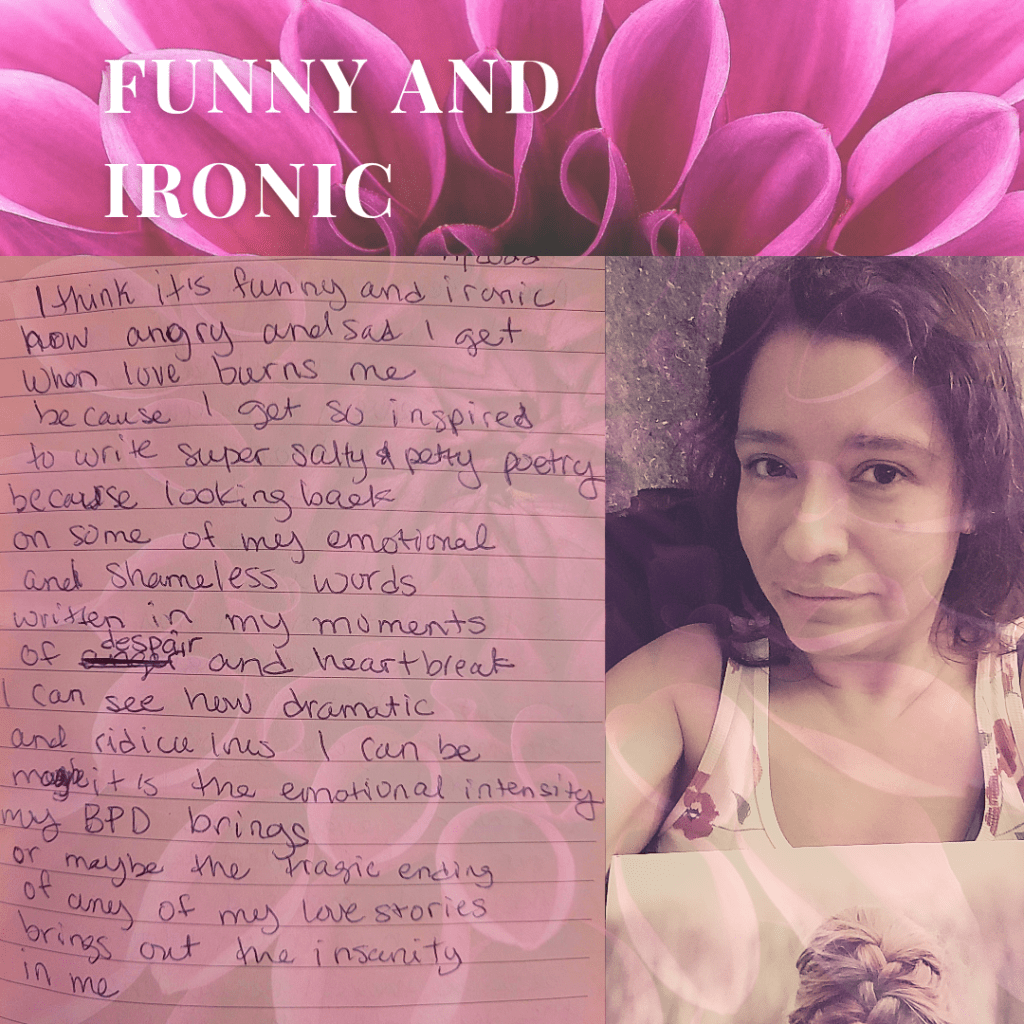 FUNNY AND
IRONIC
I think it's funny and ironic
how angry and sad I get
when love burns me
because I get so inspired
to write super salty & petty poetry
because looking back
on some of my emotional
and shameless words
written in my moments
of despair and heartbreak
I can see how dramatic
and ridiculous I can be
maybe it is the emotional intensity
my BPD brings
or maybe the tragic ending
of any of my love stories
brings out the insanity
in me